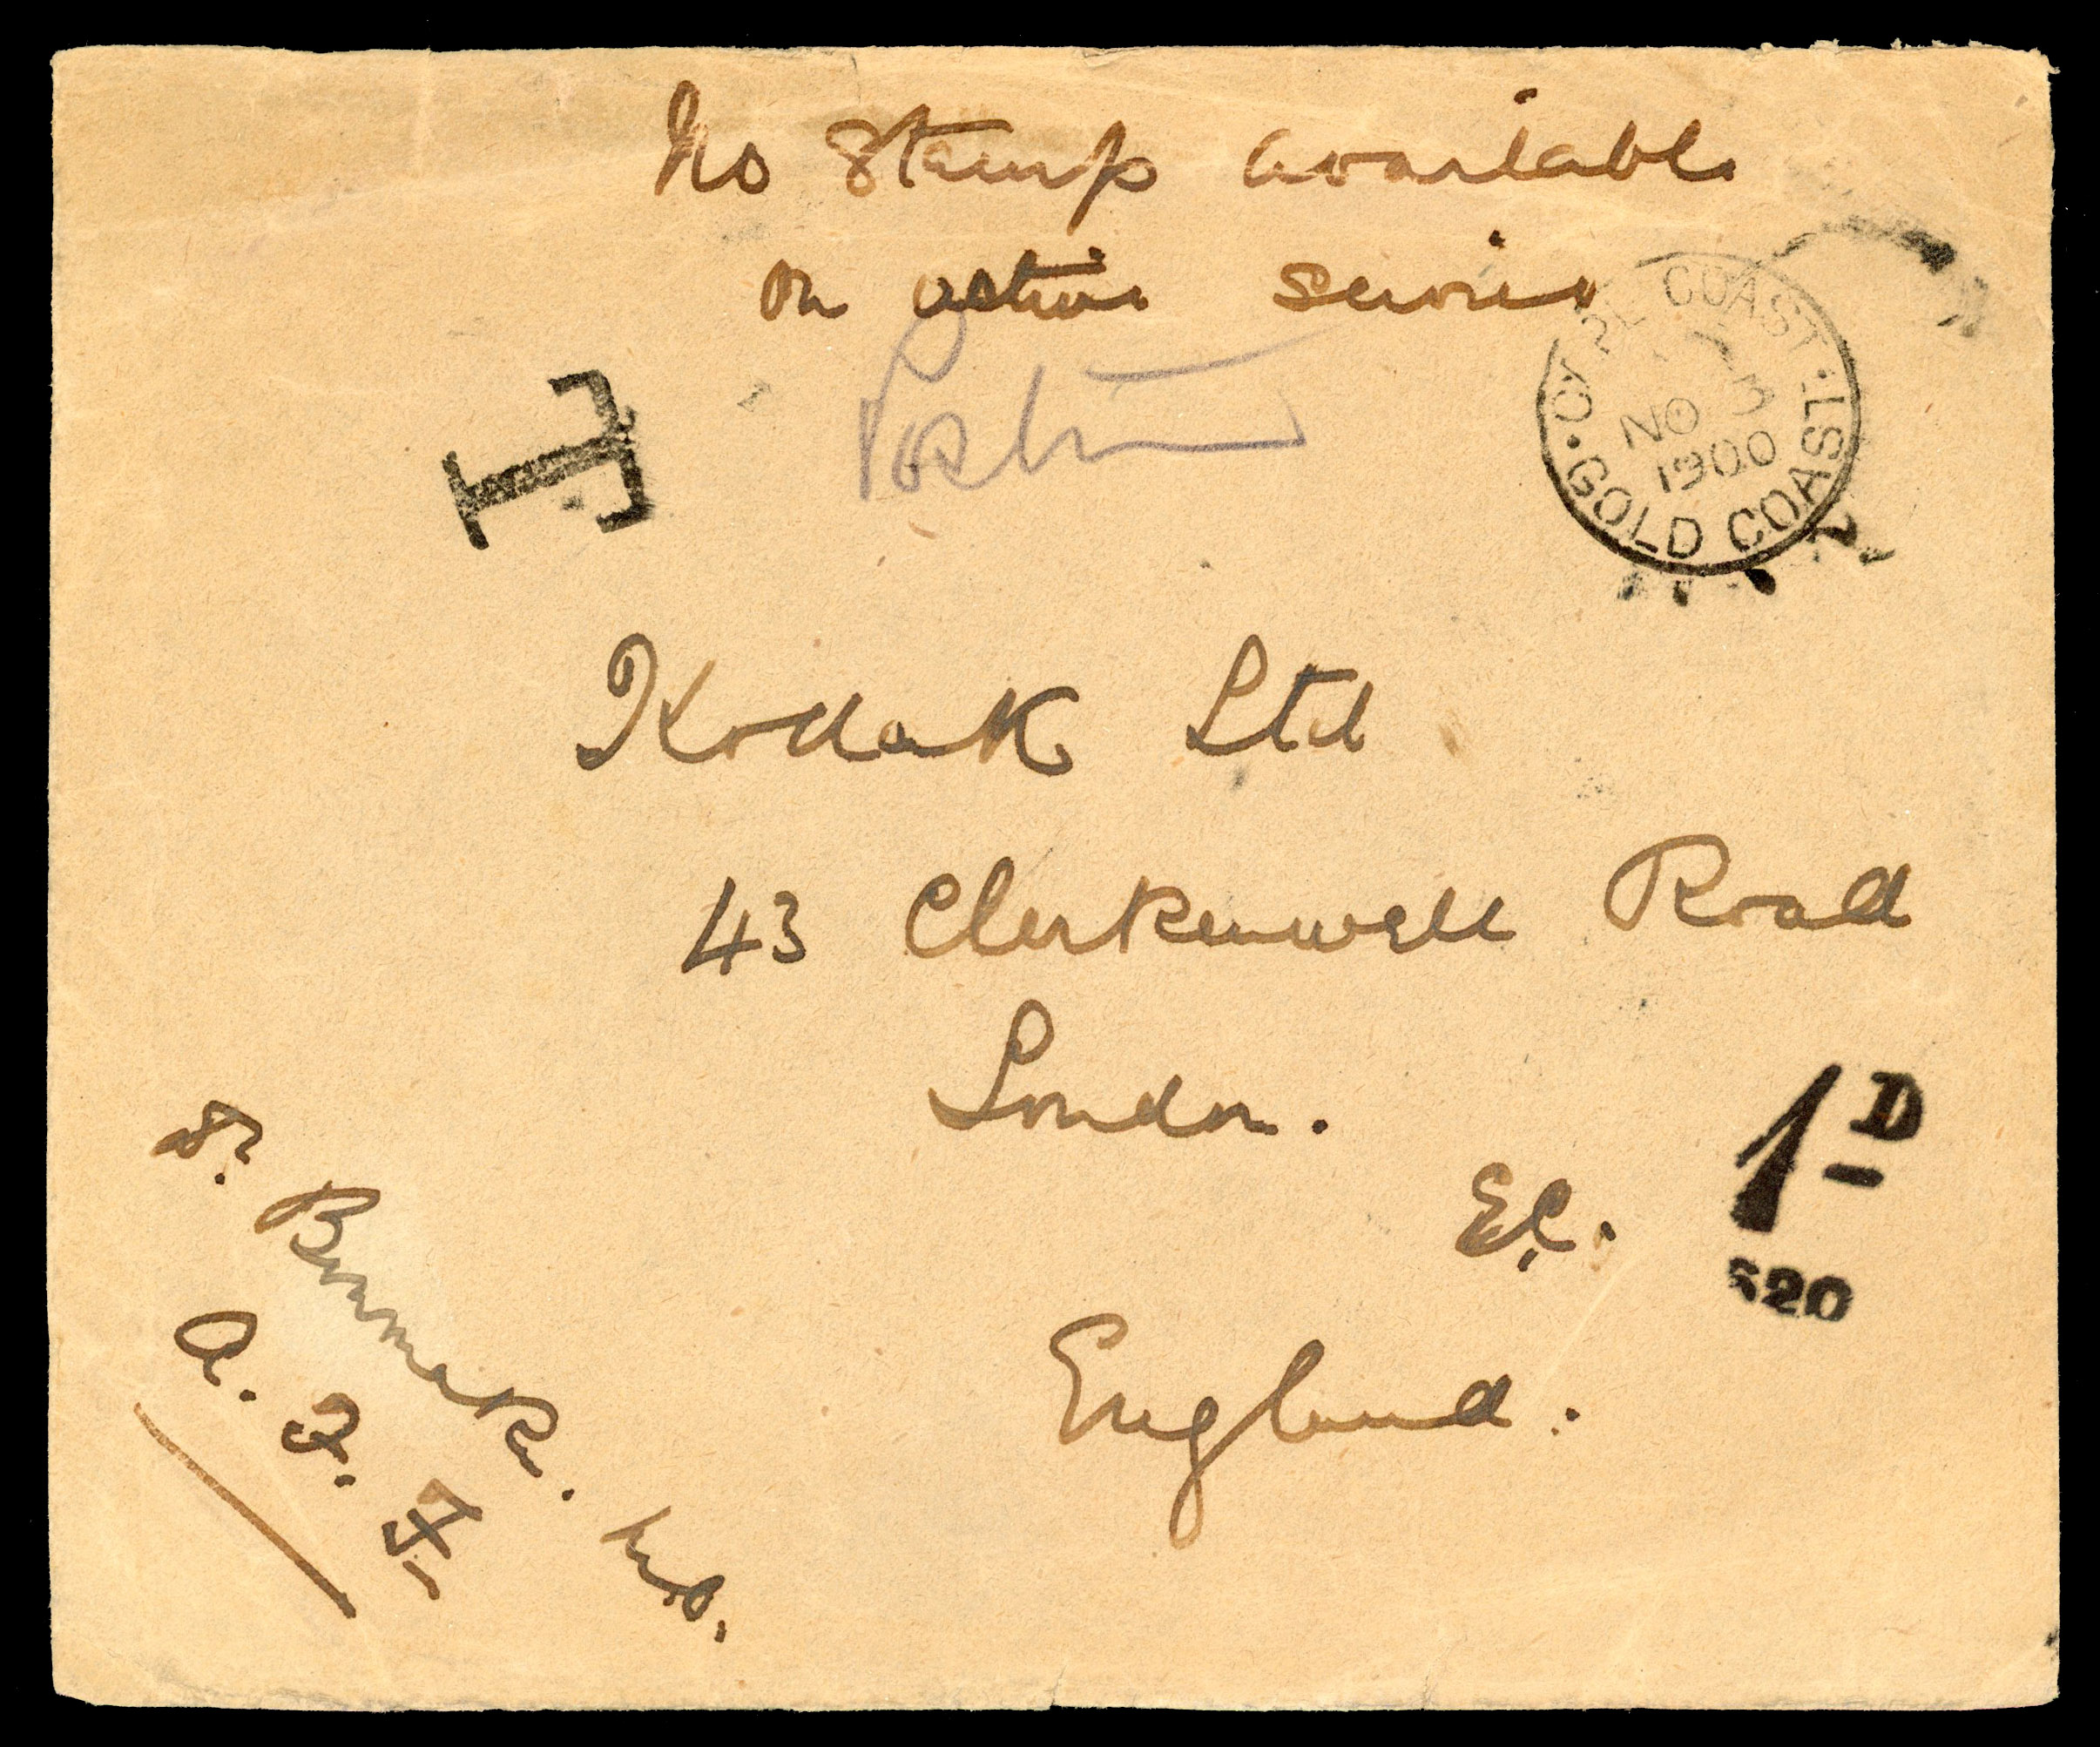 No Stamp available
on active service
CAPE COAST
NO 3
1900
GOLD COAST
T
Kodak Ltd
43 Clerkenwell Road
London.
E.C.
1D
620
England.